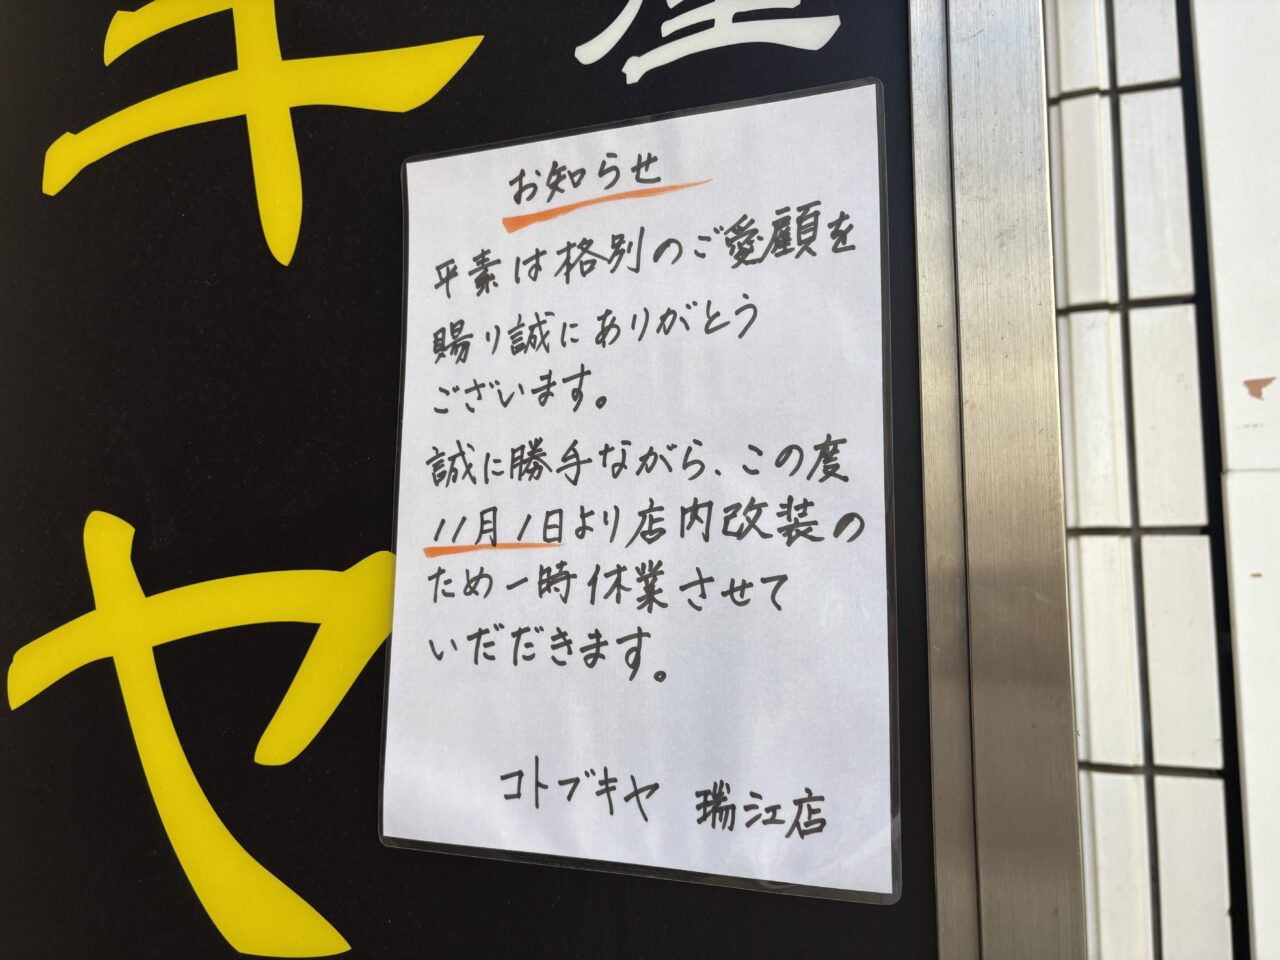 キヤ
お知らせ
平素は格別のご愛顧を
賜り誠にありがとう
ございます。
誠に勝手ながら、この度
11月1日より店内改装の
ため一時休業させて
いだだきます。
コトブキヤ 瑞江店